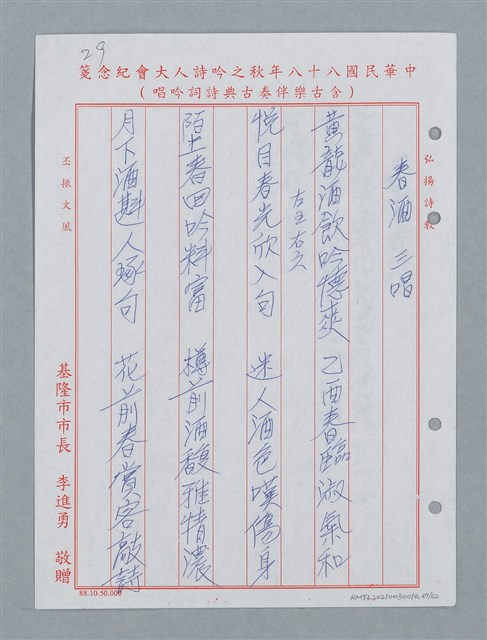 29
中華民國八十八年秋之吟詩人大會紀念箋
（含古樂伴奏古典詩詞吟唱）
弘揚詩教
春酒 三唱
黃龍酒飲吟懷爽 乙酉春臨淑氣和
右五右六
悅目春光欣入句 迷人酒色嘆傷身
陌上春回吟料富 樽前酒馥雅情濃
月下酒斟人琢句 花前春賞客敲詩
丕振文風
基隆市市長 李進勇 敬贈
88.10.50,000
NMTL20210030010.49/62